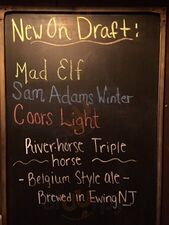 New On Draft:
Mad Elf
Sam Adams Winter
Coors Light
River-horse Triple
horse
- Belgium Style Ale -
Brewed in Ewing NJ